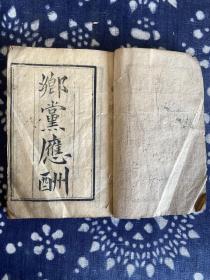 鄉黨應酬